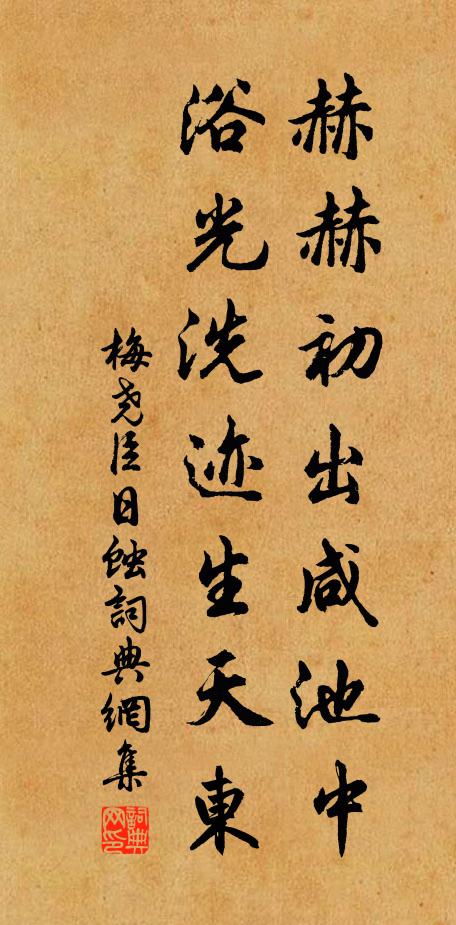 赫赫初出咸池中
浴光洗迹生天東
梅尧臣日蝕詞典網集
詞典网印